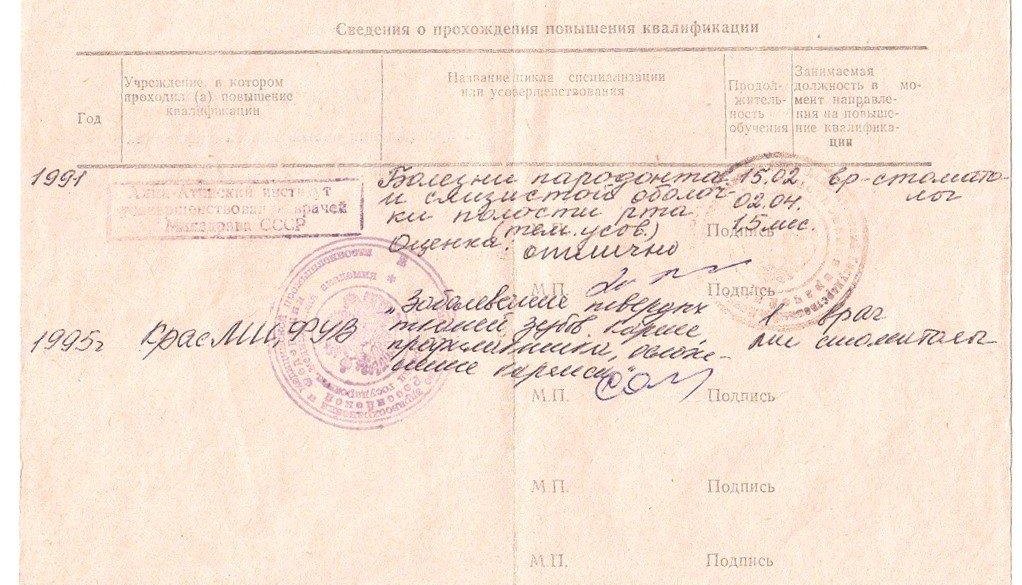 Сведения о прохождения повышения квалификации
Год
Учреждение, в котором
проходил (а) повышение
квалификации
Название цикла специализации
или усовершенствования
Продол-
житель-
ность
обучения
Занимаемая
должность в мо-
мент направле-
ния на повыше-
ние квалифика-
ции
1991
Алма-Атинский институт
усовершенствования врачей
Минздрава СССР
Болезни пародонта
и слизистой оболоч
ки полости рта
(тем. усов.)
Оценка: отлично
15.02
02.04.
1.5 мес.
вр-стомато-
лог
Подпись
М.П. Подпись
1995г
КрасМИ, ФУВ
"Заболевание твердых
тканей зубов. Кариес,
профилактика, осложне-
ние кариеса"
1
врач
стоматолог
М.П. Подпись
М.П. Подпись
М.П. Подпись